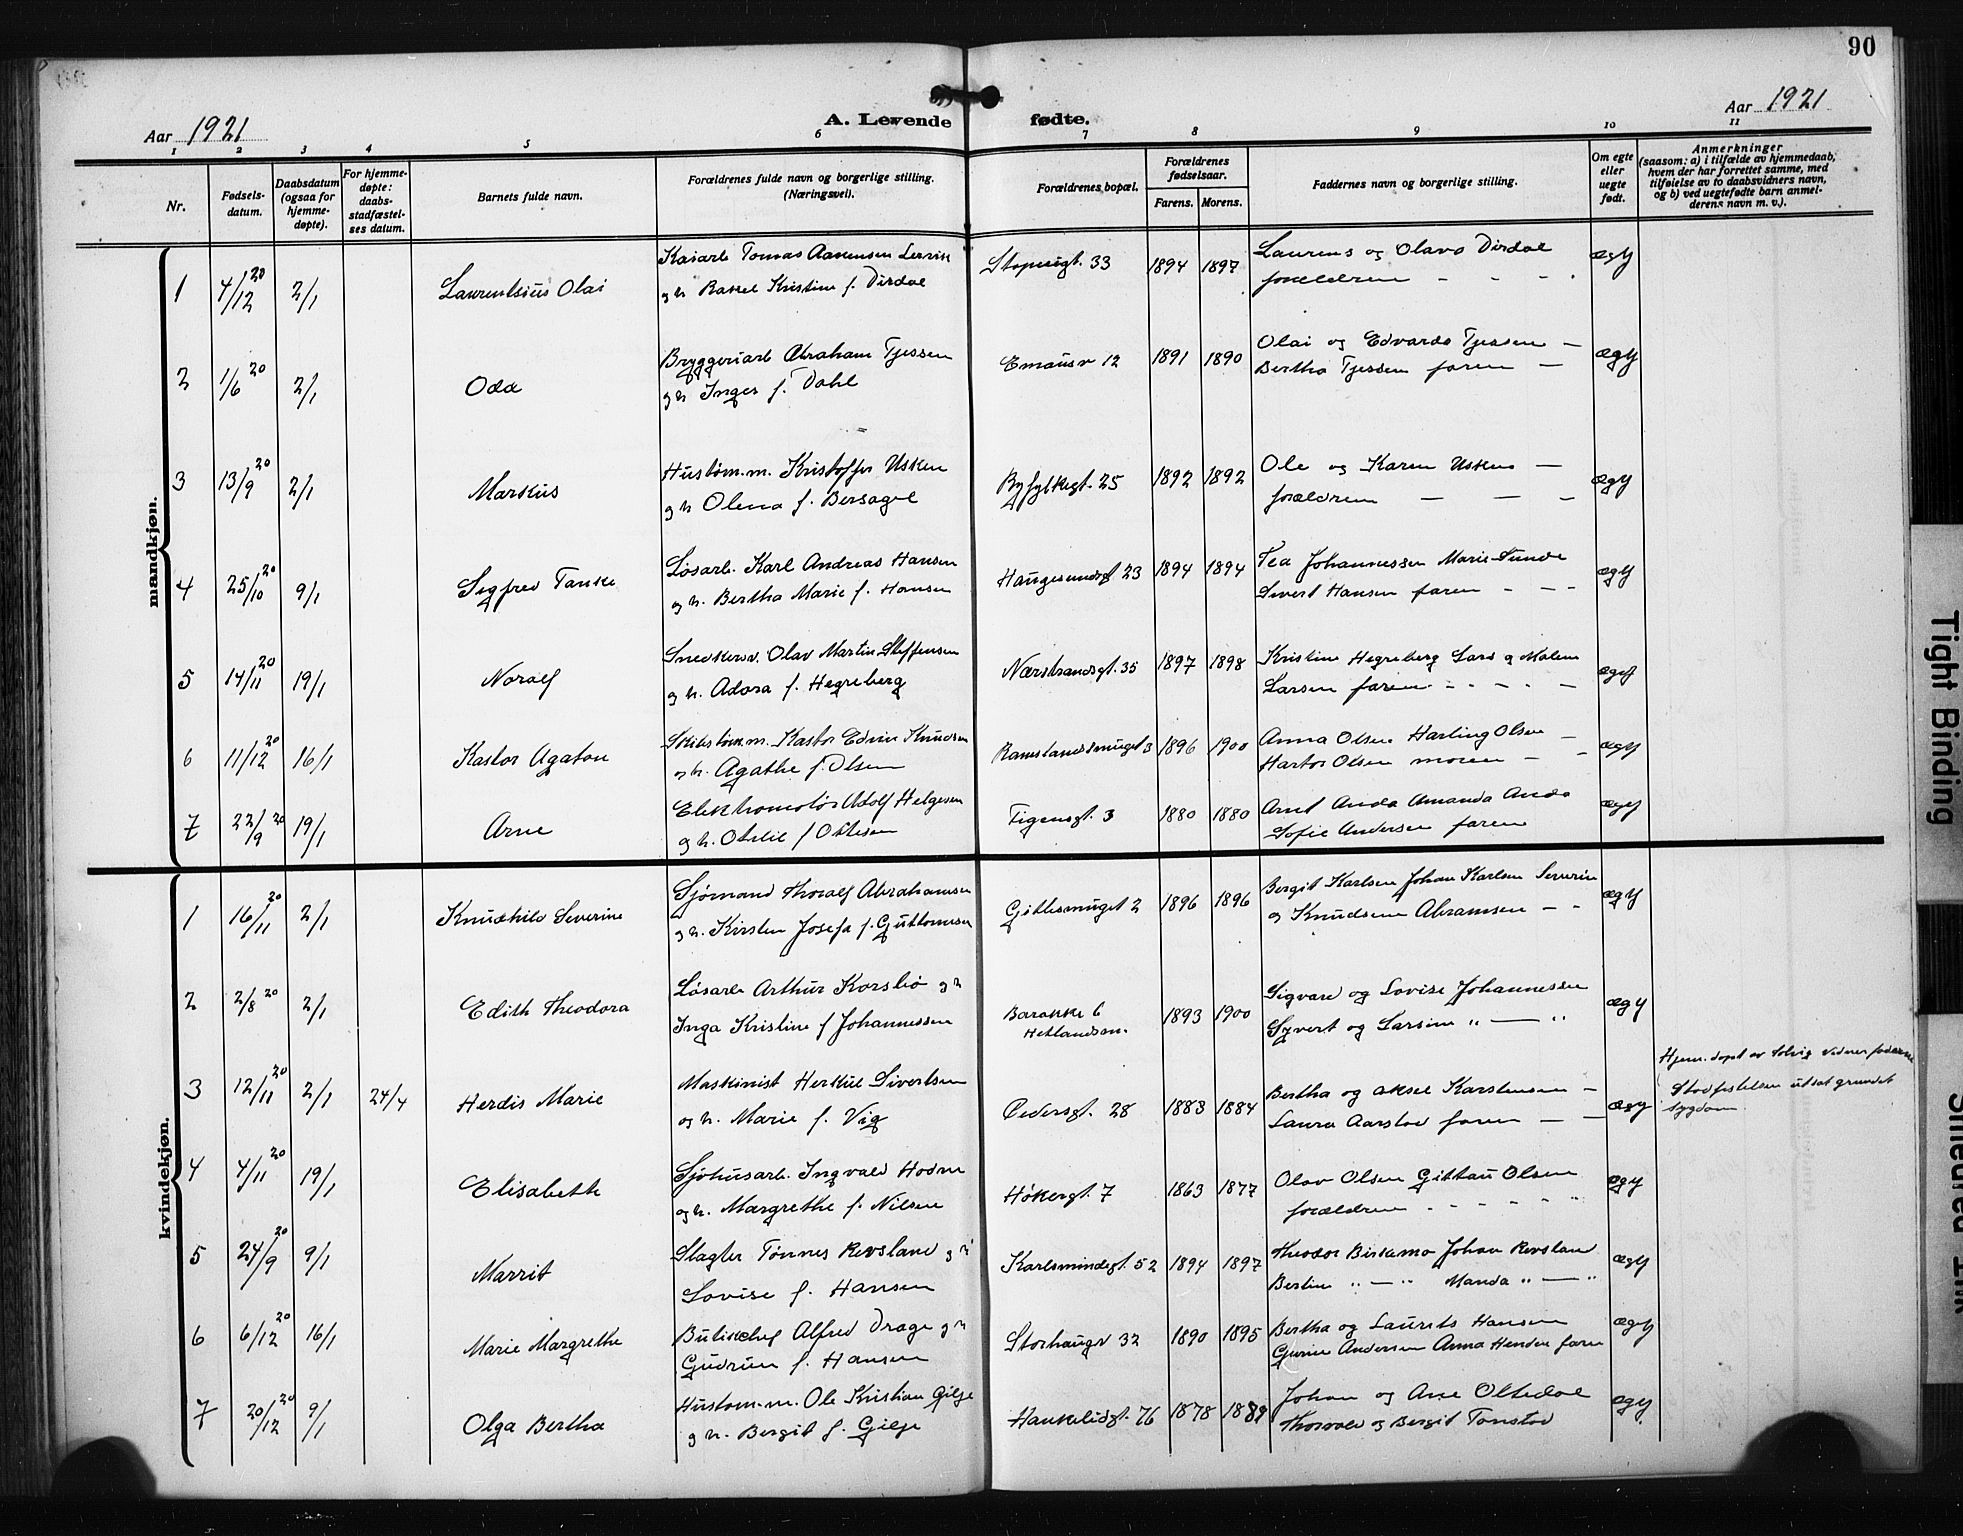 90
Aar 1921
A. Levende fødte.
Aar 1921
1 2 3 4 5 6 7 8 9 10 11
Nr.
Fødsels-
datum.
Daabsdatum
(ogsaa for
hjemme-
døpte).
For hjemme-
døpte:
daabs-
stadfæstel-
ses datum.
Barnets fulde navn.
Forældrenes fulde navn og borgerlige stilling.
(Næringsvei).
Forældrenes bopæl.
Forældrenes
fødselsaar.
Farens. Morens.
Faddernes navn og borgerlige stilling.
Om egte
eller
uegte
født.
Anmerkninger
(saasom: a) i tilfælde av hjemmedaab,
hvem der har forrettet samme, med
tilføielse av to daabsvidners navn,
og b) ved uegtefødte barn anmel-
derens navn m. v.).
mandkjøn.
1 4/12 20 2/1 Laurentsius Olai
Kaiarb Tomas Aanensen
og h. Rakel Kristine f. Dirdal
33 1894 1897
Laurens og Olava Dirdal
forældrene - - -
ægt
2 1/6 20 2/1 Odd
Bryggeriarb Abraham Tjessem
og h Inger f. Dahl
Emausv 12 1891 1890
Olai og Edvarda Tjessem —
Bertha Tjessem faren —
ægt
3 13/9 20 2/1 Markus
Hustøm.m. Kristoffer Usken
og h Olena f. Bersagel
Ryfylkegt. 25 1892 1892
Ole og Karen Usken —
forældrene — — —
ægt
4 25/10 20 9/1 Sigfred Tanke
Løsarb. Karl Andreas Hansen
og h. Bertha Marie f. Hansen
Haugesundsgt 23 1894 1894
Tea Johannessen Marie Sunde
Sivert Hansen faren - - -
ægt
5 14/11 20 19/1 Noralf
Snedkersv. Olav Martin Steffensen
og h. Adora f. Hegreberg
Nærstrandsgt. 35 1897 1898
Kristine Hegreberg Lars og Malene
Larsen faren - - - —
ægt
6 11/12 20 16/1 Kastor Agaton
Skibstøm.m. Kastor Edvin Knudsen
og h. Agathe f. Olsen
Ramslandssmuget 3 1896 1900
Anna Olsen Harling Olsen —
Hartor Olsen moren — -
ægt
7 22/9 20 19/1 Arne
Elektromotør Adolf Helgesen
og h. Otelie f Ottesen
3 1880 1880
Arnt Anda Amanda Anda
Sofie Andersen faren
ægt
kvindekjøn.
1 16/11 20 2/1 Knudhild Severine
Sjømand Thoralf Abrahamsen
og h. Kirsten Josefa f. Guttormsen
2 1896 1896
Bergit Karlsen Johan Karlsen Severin
og Knudsine Abramsen — -
ægt
2 2/8 20 2/1 Edith Theodora
Løsarb Arthur Korsbø og h
Inga Kristine f Johannessen
Barakke 6
Hetlandsm.
1893 1900
Sigvard og Lovise Johannessen
Syvert og Larsine „ — „
ægt
3 12/11 20 2/1 24/4 Herdis Marie
Maskinist Herkul Sivertsen
og h. Marie f. Vig
Pedersgt. 28 1883 1884
Bertha og Aksel Karstensen —
Laura Aarstad faren — —
ægt
Hjem. døpt av
Stadfestelsen utsat grundet
sygdom
4 4/11 20 19/1 Elisabeth
Sjøhusarb. Ingvald Hodne
og h. Margrethe f. Nilsen
Høkergt 7 1863 1877
Olav Olsen Olsen
forældrene - - - - -
ægt
5 24/9 20 9/1 Marrit
Slagter Tønnes Revsland og h
Lovise f. Hansen
Karlsmindegt. 52 1894 1897
Theodor Birkemo Johan Revsland
Bertine „ — „ Manda „ — „
ægt
6 6/12 20 16/1 Marie Margrethe
Butikchef Alfred Drage og h
Gudrun f. Hansen
Storhaugv 32 1890 1895
Bertha og Laurits Hansen
Andersen Anna faren
ægt
7 20/12 20 9/1 Olga Bertha
Hustøm.m. Ole Kristian Gilje
og h. Bergit f. Gilje
Haukeligt. 76 1878 1889
Johan og Ane Oltedal
Thorvald og Bergit Tonstad
ægt
Tight Binding
Smeared Ink